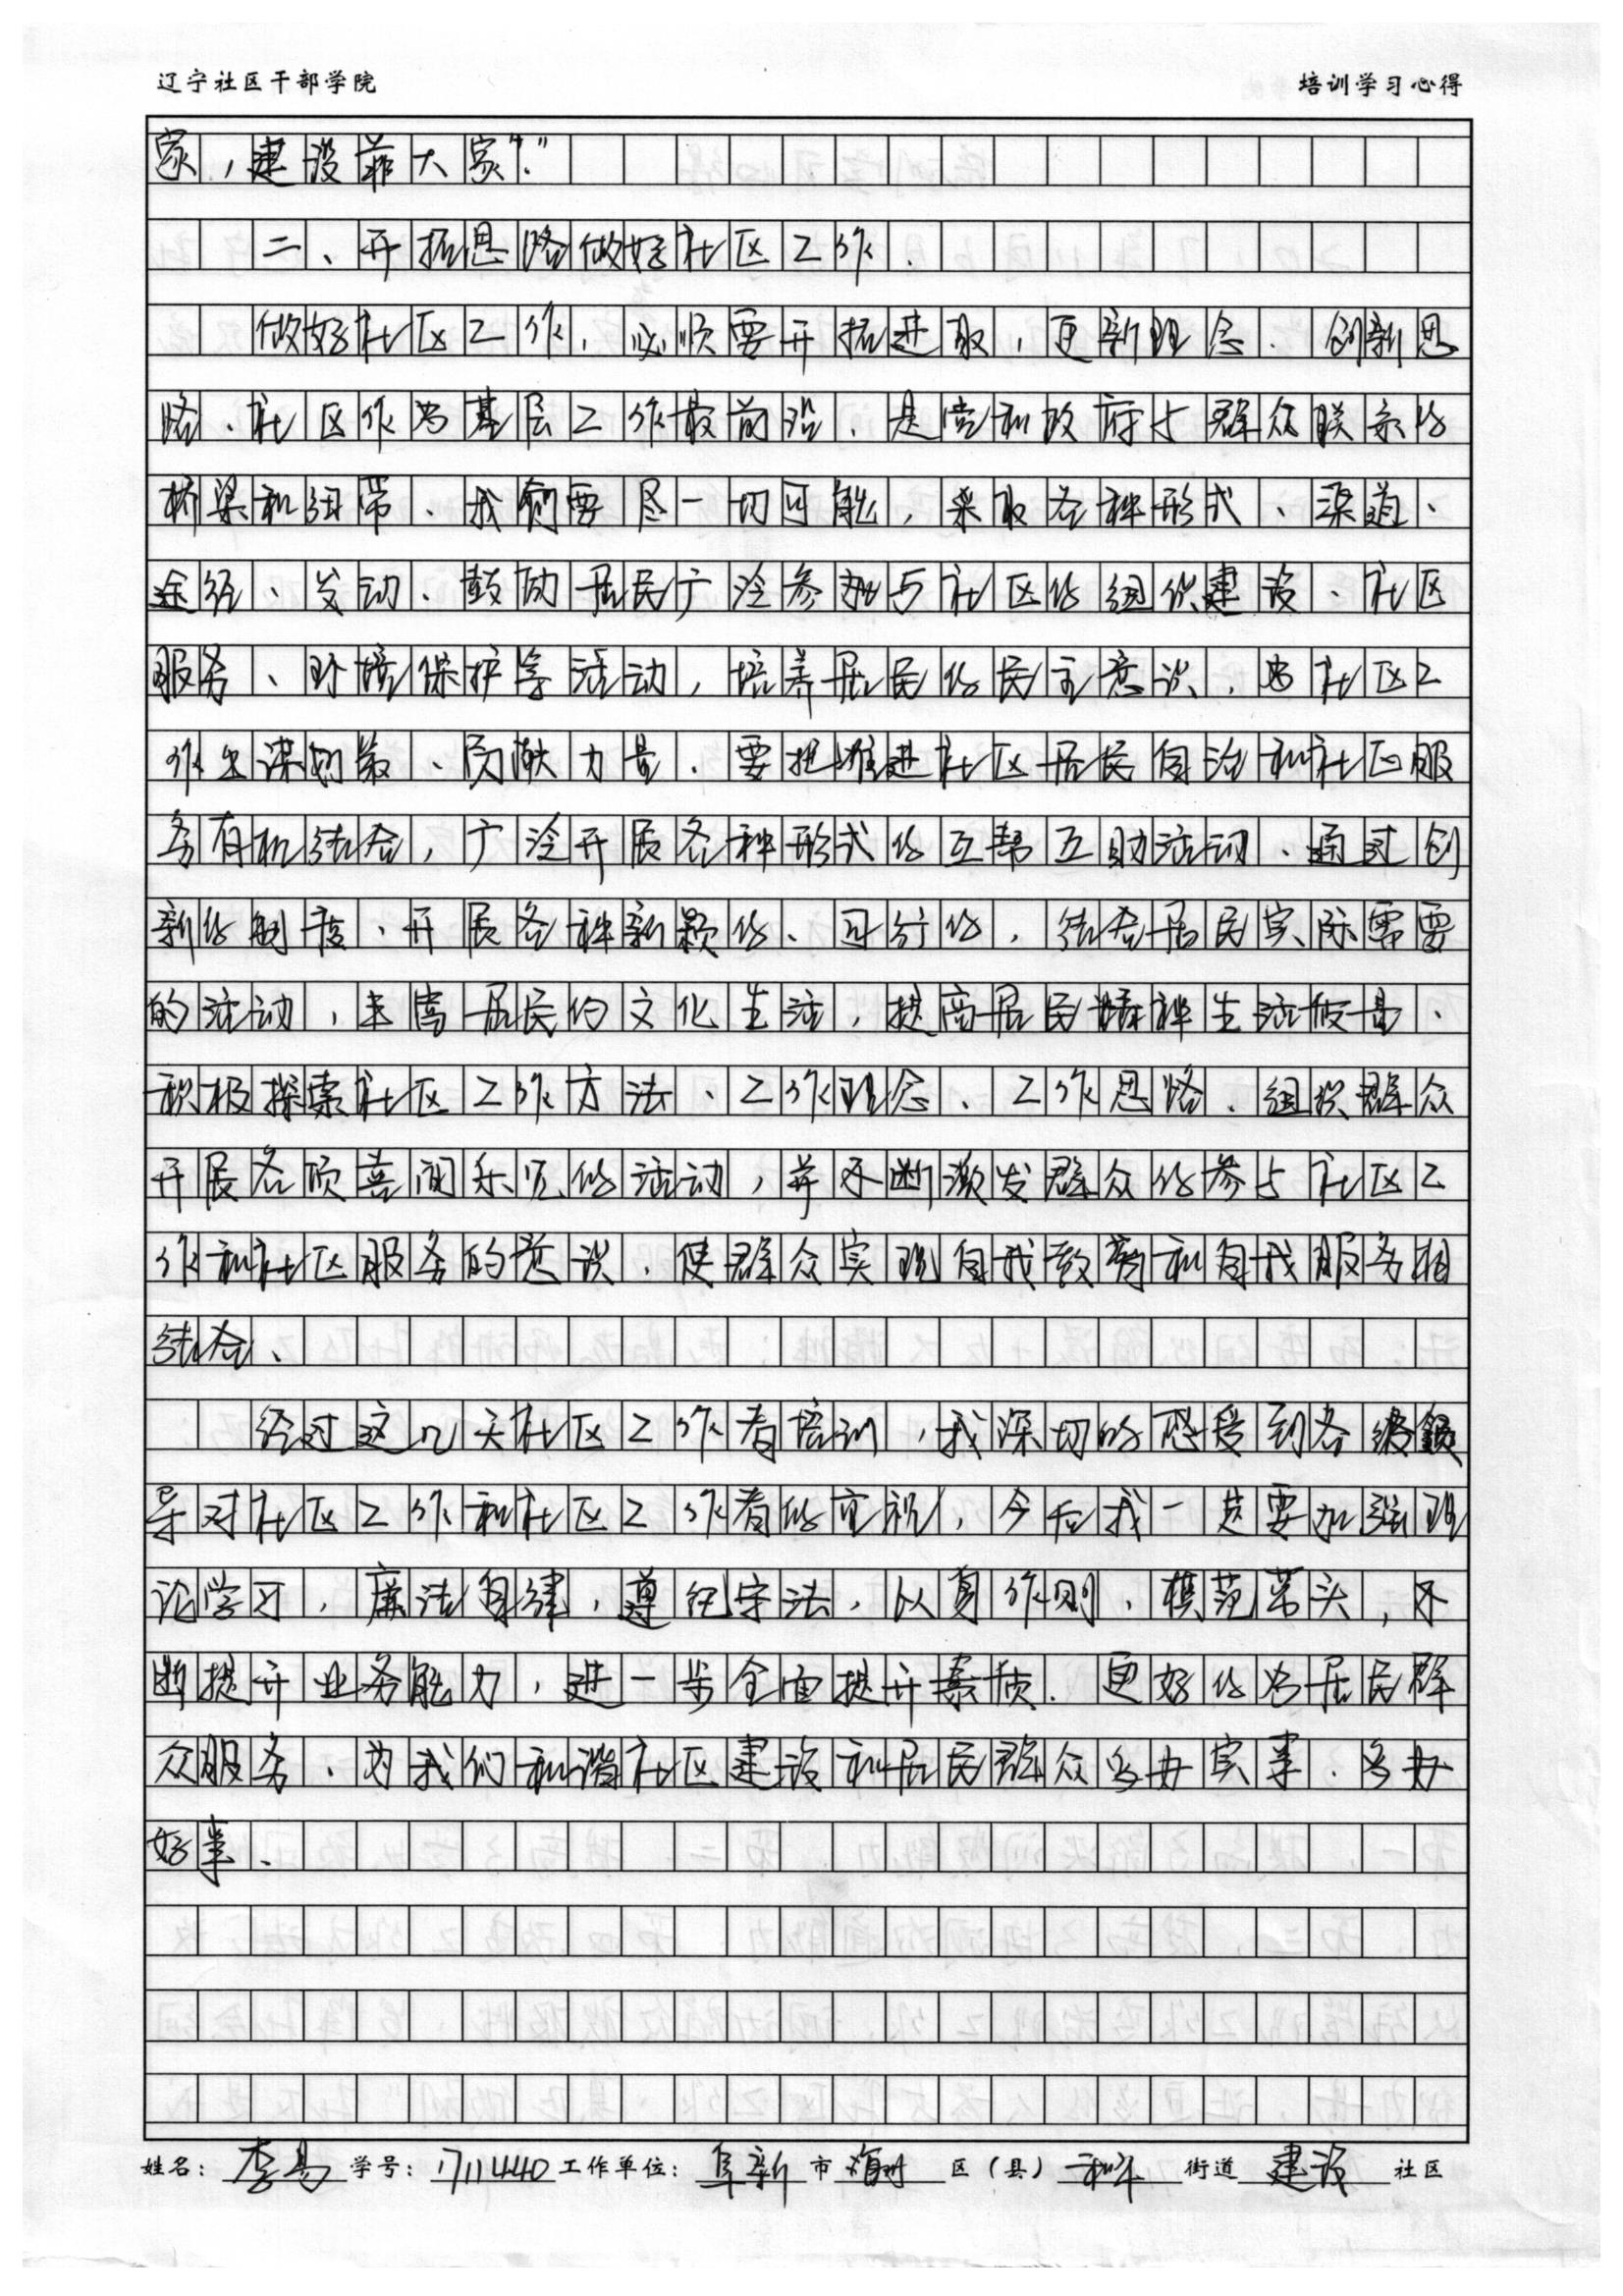 辽宁社区干部学院 培训学习心得
家,建设靠大家"."
二、开拓思路做好社区工作.
做好社区工作,必须要开拓进取,更新理念、创新思
路、社区作为基层工作最前沿、是党和政府与群众联系的
桥梁和纽带、我们要尽一切可能,采取各种形式、渠道、
途径、发动、鼓励居民广泛参加与社区的组织建设、社区
服务、环境保护等活动,培养居民的民主意识,为社区工
作出谋划策、贡献力量.要把推进社区居民自治和社区服
务有机结合,广泛开展各种形式的互帮互助活动、通过创
新的制度、开展各种新颖的、可行的,结合居民实际需要
的活动,丰富居民的文化生活,提高居民精神生活质量、
积极探索社区工作方法、工作理念、工作思路.组织群众
开展各项喜闻乐见的活动,并不断激发群众的参与社区工
作和社区服务的意识.使群众实现自我教育和自我服务相
结合、
经过这几天社区工作者培训,我深切的感受到各级领
导对社区工作和社区工作者的重视,今后我一定要加强理
论学习,廉洁自律,遵纪守法,以身作则、模范带头,不
断提升业务能力,进一步全面提升素质.更好的为居民群
众服务、为我们和谐社区建设和居民群众多办实事.多办
好事、
姓名:李易 学号:1711440 工作单位:阜新市海州区(县)和平街道建设社区